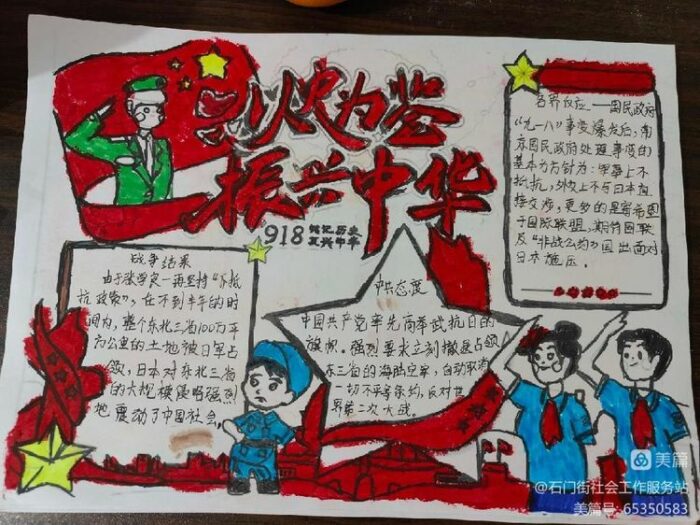 以史为鉴
振兴中华
918 铭记历史
复兴中华
各界反应——国民政府
“九一八”事变爆发后,南
京国民政府处理事变的
基本方针为:军事上不
抵抗,外交上不与日本直
接交涉,更多的是寄希图
于国际联盟,期待国联
及“非战公约”国出面对
日本施压。
战争结果
由于张学良一再坚持“不抵
抗政策”,在不到半年的时
间内,整个东北三省100万平
方公里的土地被日军占
领,日本对东北三省
的大规模侵略强烈
地震动了中国社会。
中共态度
中国共产党率先高举武抗日的
旗帜。强烈要求立刻撤退占领
东三省的海陆空军,自动取消
一切不平等条约,反对世
界第二次大战。
美篇
@石门街社会工作服务站
美篇号: 65350583